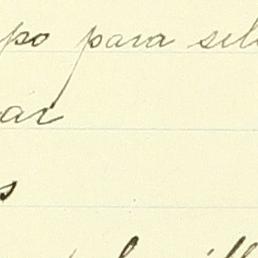 po para sel
ar
s